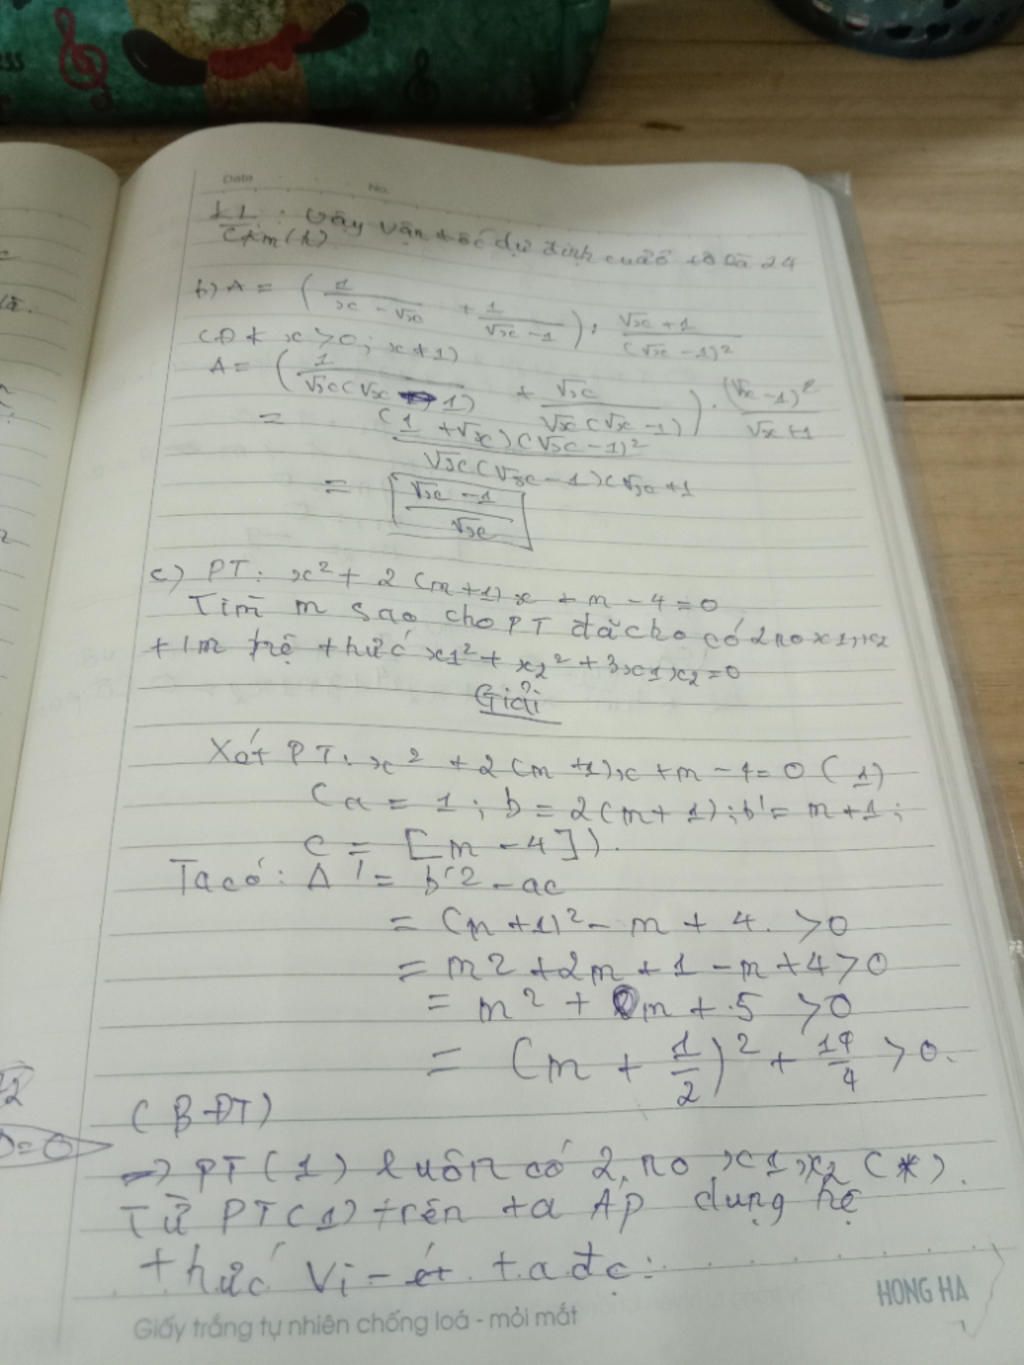 Date No.
KL: Vậy vận tốc dự định của ô tô là 24
(km/h)
b) A = (1/(x - √x) + 1/(√x - 1)) : (√x + 1)/(√x - 1)²
(Đk x > 0; x ≠ 1)
A = (1/(√x(√x - 1)) + √x/(√x(√x - 1))) . (√x - 1)²/(√x + 1)
= (1 + √x)(√x - 1)²/(√x(√x - 1)(√x + 1
= (√x - 1)/√x
c) PT: x² + 2(m+1)x + m - 4 = 0
Tìm m sao cho PT đã cho có 2 no x1, x2
t/m hệ thức x1² + x2² + 3x1x2 = 0
Giải
Xét PT: x² + 2(m+1)x + m - 4 = 0 (1)
(a = 1; b = 2(m+1); b' = m+1;
c = [m - 4]).
Ta có: Δ' = b'2 - ac
= (m+1)² - m + 4. >0
= m2 + 2m + 1 - m + 4 > 0
= m² + m + 5 > 0
= (m + 1/2)² + 19/4 > 0.
(BĐT)
=> PT(1) luôn có 2 no x1, x2 (*).
Từ PT(1) trên ta ÁP dụng hệ
thức Vi-ét ta đc:
HONG HA
Giấy trắng tự nhiên chống loá - mỏi mắt